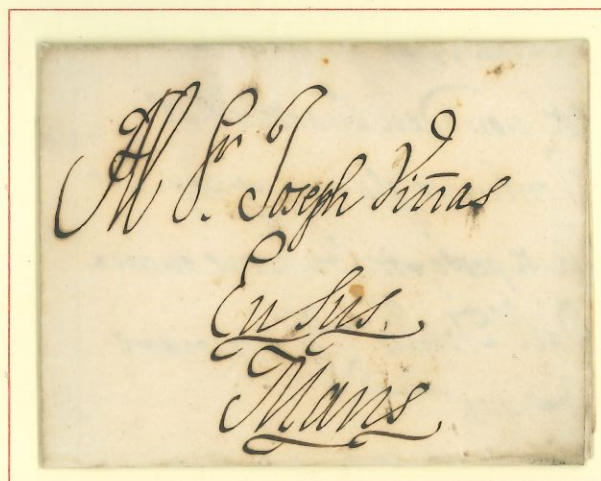 Al Sr. Joseph Viñas
En Sus
Mans